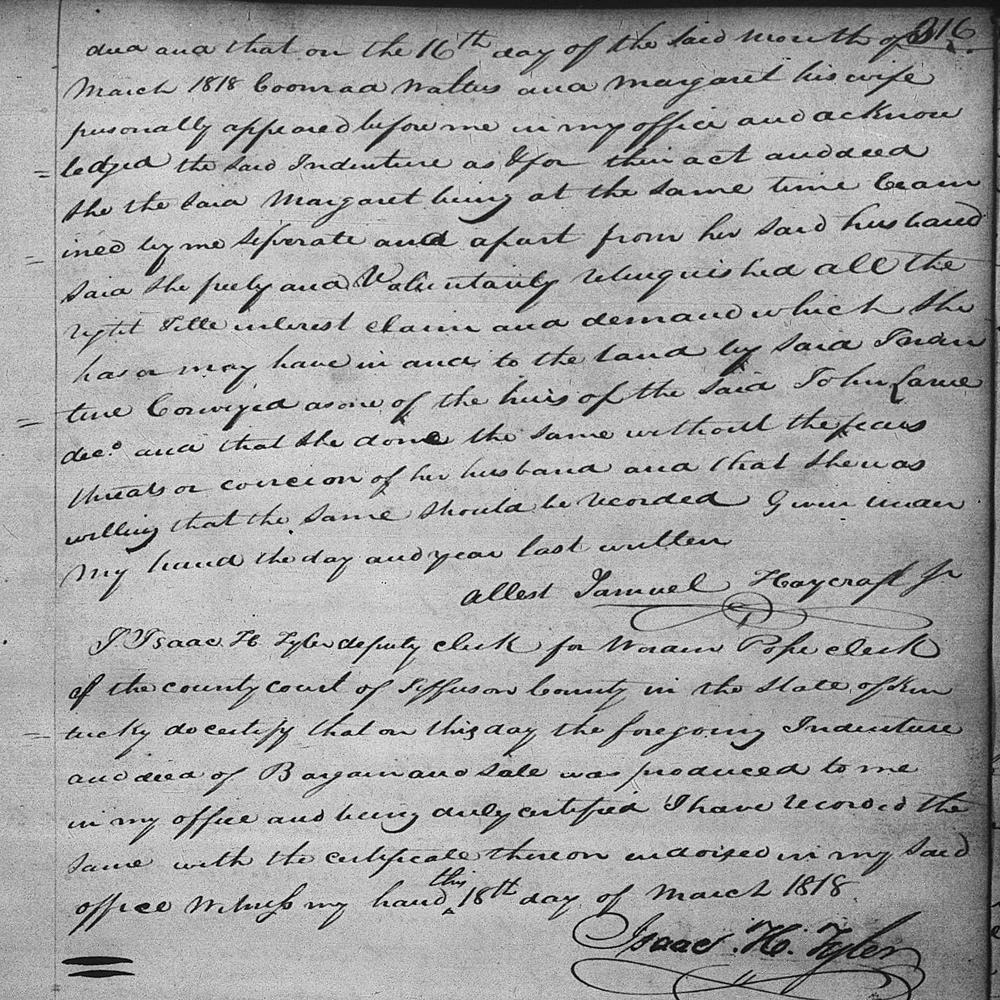 316
deed and that on the 16th day of the said Month of
March 1818 Coonrad Walters and Margaret his wife
personally appeared before me in my office and acknow
= ledged the said Indenture as & for their act and deed
She the said Margaret being at the same time Exam
= ined by me Seperate and apart from her said husband
said she freely and Voluntarily relinquished all the
right Title interest claim and demand which She
has or may have in and to the land by said Inden
= ture Conveyed as one of the heirs of the said John Lame
decd and that she done the same without the fears
threats or coercion of her husband and that she was
willing that the same should be recorded Given under
My hand the day and year last written
attest Samuel Haycraft Jr
I Isaac H Tyler deputy clerk for Worden Pope clerk
of the county court of Jefferson County in the State of Ken
= tucky do certify that on this day the foregoing Indenture
and deed of Bargain and Sale was produced to me
in my office and being duly certified I have recorded the
same with the certificate thereon endorsed in my said
office Witness my hand this 18th day of March 1818
Isaac H. Tyler